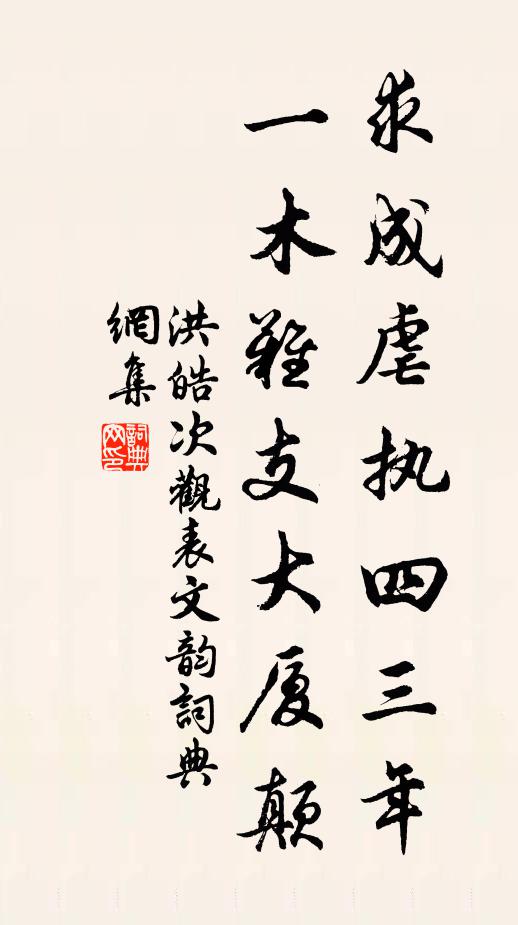 求成虐执四三年
一木難支大厦颠
洪皓次觀表文韵詞典
網集
詞典
网印